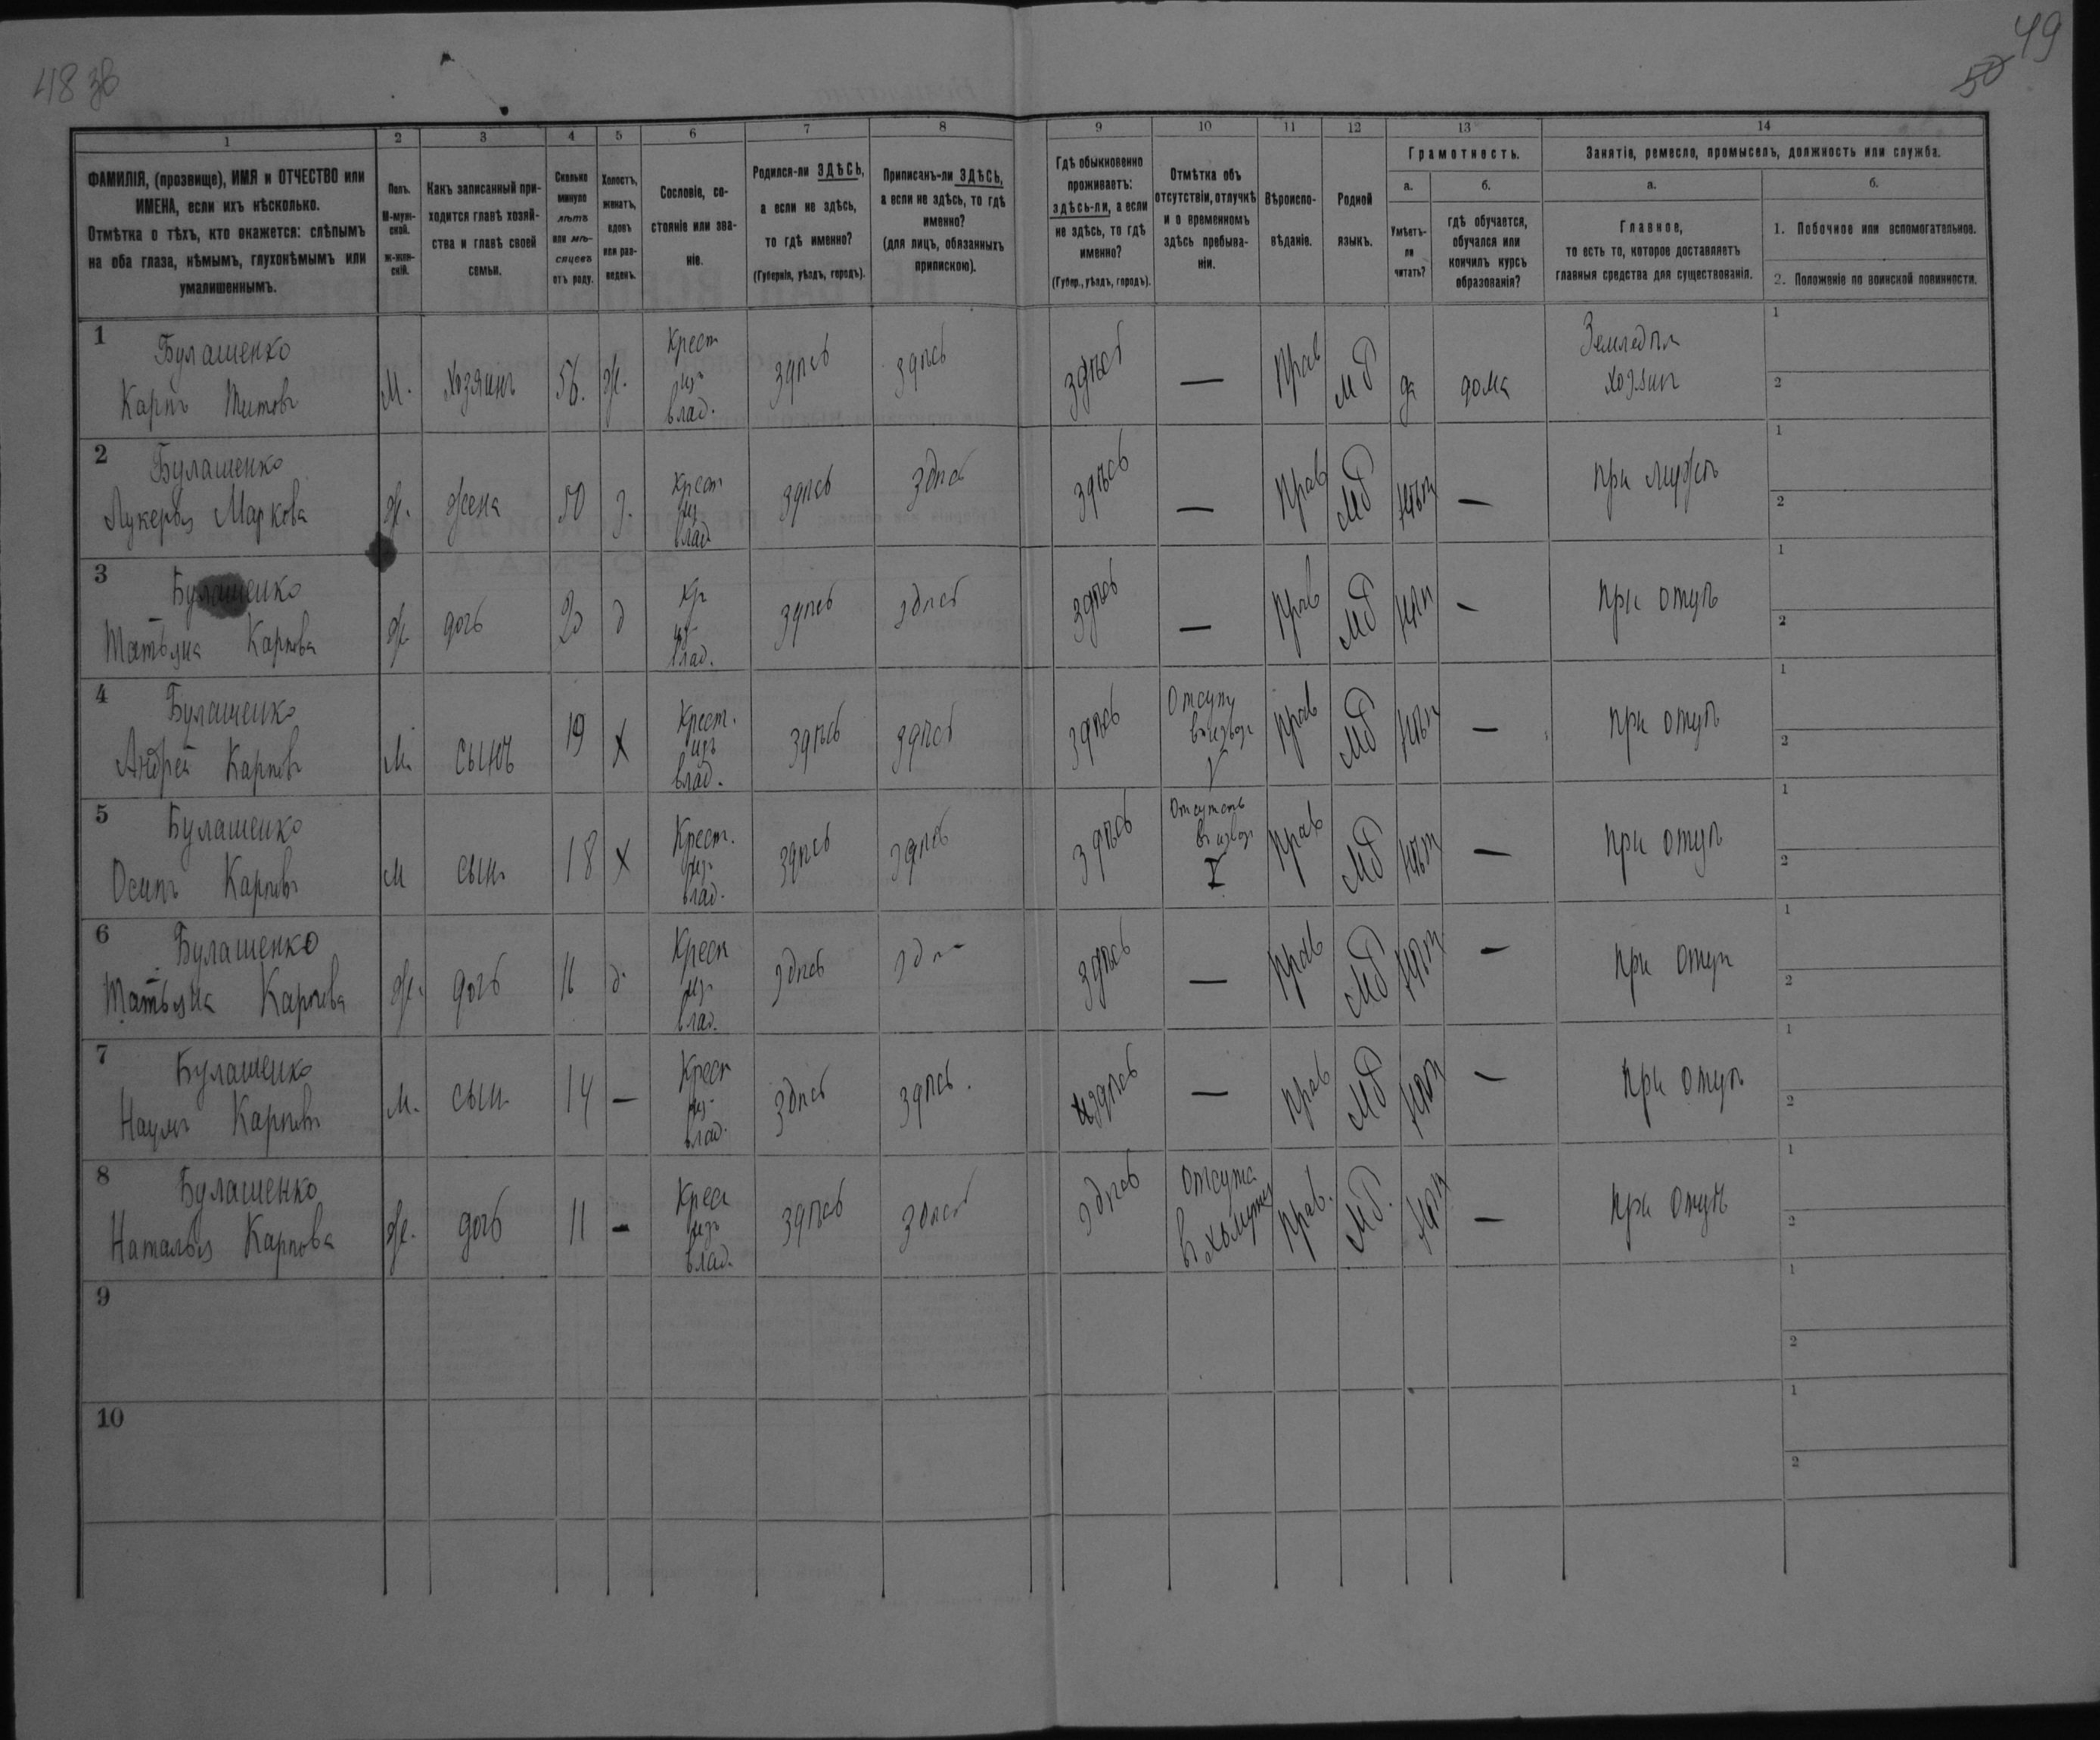 48 зв
49
50
1
2
3
4
5
6
7
8
9
10
11
12
13
14
ФАМИЛІЯ, (прозвище), ИМЯ и ОТЧЕСТВО или
ИМЕНА, если ихъ нѣсколько.
Отмѣтка о тѣхъ, кто окажется: слѣпымъ
на оба глаза, нѣмымъ, глухонѣмымъ или
умалишеннымъ.
Полъ.
М-муж-
ской.
ж-жен-
скій.
Какъ записанный при-
ходится главѣ хозяй-
ства и главѣ своей
семьи.
Сколько
минуло
лѣтъ
или мѣ-
сяцевъ
отъ роду.
Холостъ,
женатъ,
вдовъ
или раз-
веденъ.
Сословіе, со-
стояніе или зва-
ніе.
Родился-ли ЗДѢСЬ,
а если не здѣсь,
то гдѣ именно?
(Губернія, уѣздъ, городъ).
Приписанъ-ли ЗДѢСЬ,
а если не здѣсь, то гдѣ
именно?
(для лицъ, обязанныхъ
припискою).
Гдѣ обыкновенно
проживаетъ:
здѣсь-ли, а если
не здѣсь, то гдѣ
именно?
(Губер., уѣздъ, городъ).
Отмѣтка объ
отсутствіи, отлучкѣ
и о временномъ
здѣсь пребыва-
ніи.
Вѣроиспо-
вѣданіе.
Родной
языкъ.
Грамотность.
а.
Умѣетъ-
ли
читать?
б.
гдѣ обучается,
обучался или
кончилъ курсъ
образованія?
Занятіе, ремесло, промыселъ, должность или служба.
а.
Главное,
то есть то, которое доставляетъ
главныя средства для существованія.
б.
1. Побочное или вспомогательное.
2. Положеніе по воинской повинности.
1
Булашенко
Карпъ Титовъ
М.
Хозяинъ
56.
ж.
Крест
изъ
влад.
здѣсь
здѣсь
здѣсь
—
Прав
МР
да
дома
Земледѣл
хозяин
1
2
2
Булашенко
Лукерья Маркова
ж.
жена
50
з.
Крест
изъ
влад
здѣсь
здѣсь
здѣсь
—
Прав
МР
нѣт
—
при мужѣ
1
2
3
Булашенко
Татьяна Карпова
ж
дочь
20
д
Кр
изъ
влад.
здѣсь
здѣсь
здѣсь
—
Прав
МР
нѣт
—
при отцѣ
1
2
4
Булашенко
Андрей Карповъ
М.
сынъ
19
х
Крест.
изъ
влад.
здѣсь
здѣсь
здѣсь
Прав
МР
нѣт
—
при отцѣ
1
2
5
Булашенко
Осипъ Карповъ
М
сынъ
18
х
Крест.
изъ
влад.
здѣсь
здѣсь
здѣсь
Прав
МР
нѣт
—
при отцѣ
1
2
6
Булашенко
Татьяна Карпова
ж.
дочь
16
д.
Крест
изъ
влад.
здѣсь
здѣ
здѣсь
—
Прав
МР
нѣт
—
при отцѣ
1
2
7
Булашенко
Наумъ Карповъ
М.
сын
14
—
Крест
изъ
влад.
здѣсь
здѣсь.
здѣсь
—
Прав
МР
нѣт
—
при отцѣ
1
2
8
Булашенко
Наталья Карпова
ж.
дочь
11
—
Крест
изъ
влад.
здѣсь
здѣсь
здѣсь
Прав.
МР.
нѣт
—
при отцѣ
1
2
9
1
2
10
1
2